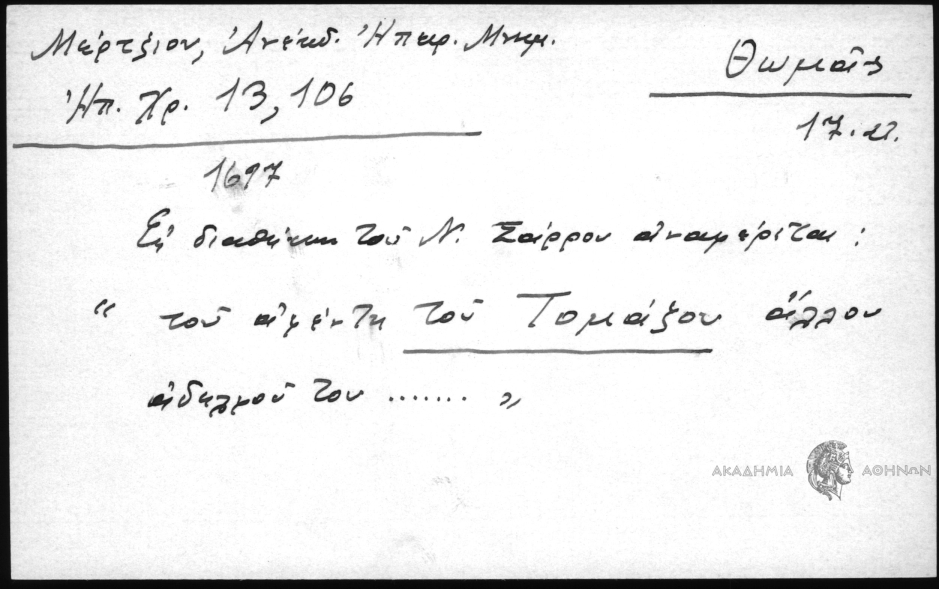 Μέρτζιου, Ἀνέκδ. Ἠπειρ. Μνημ.
Θωμᾶς
Ἠπ. Χρ. 13, 106
17. αι.
1697
Ἐν διαθήκῃ τοῦ Ν. Σάρρου ἀναφέρεται:
“ τοῦ ἀφέντη τοῦ Τομάζου ἄλλου
ἀδελφοῦ του ....... „
ΑΚΑΔΗΜΙΑ ΑΘΗΝΩΝ